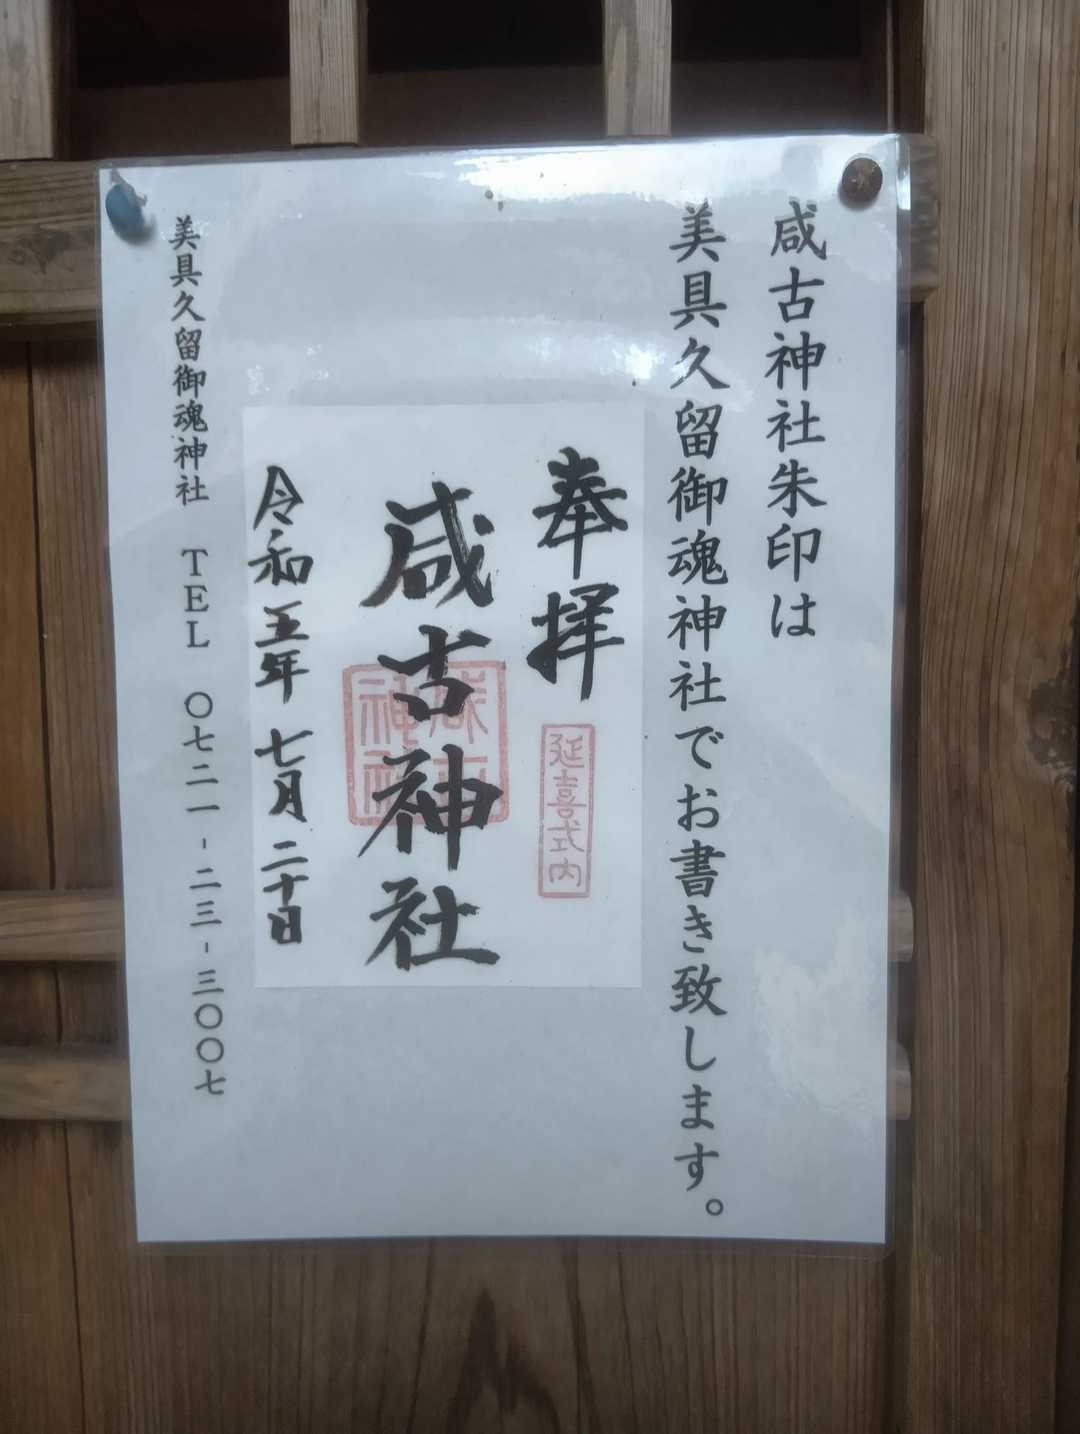 咸古神社朱印は
美具久留御魂神社でお書き致します。
奉拝
延喜式内
咸古神社
令和五年七月二十日
美具久留御魂神社 TEL 〇七二一-二三-三〇〇七